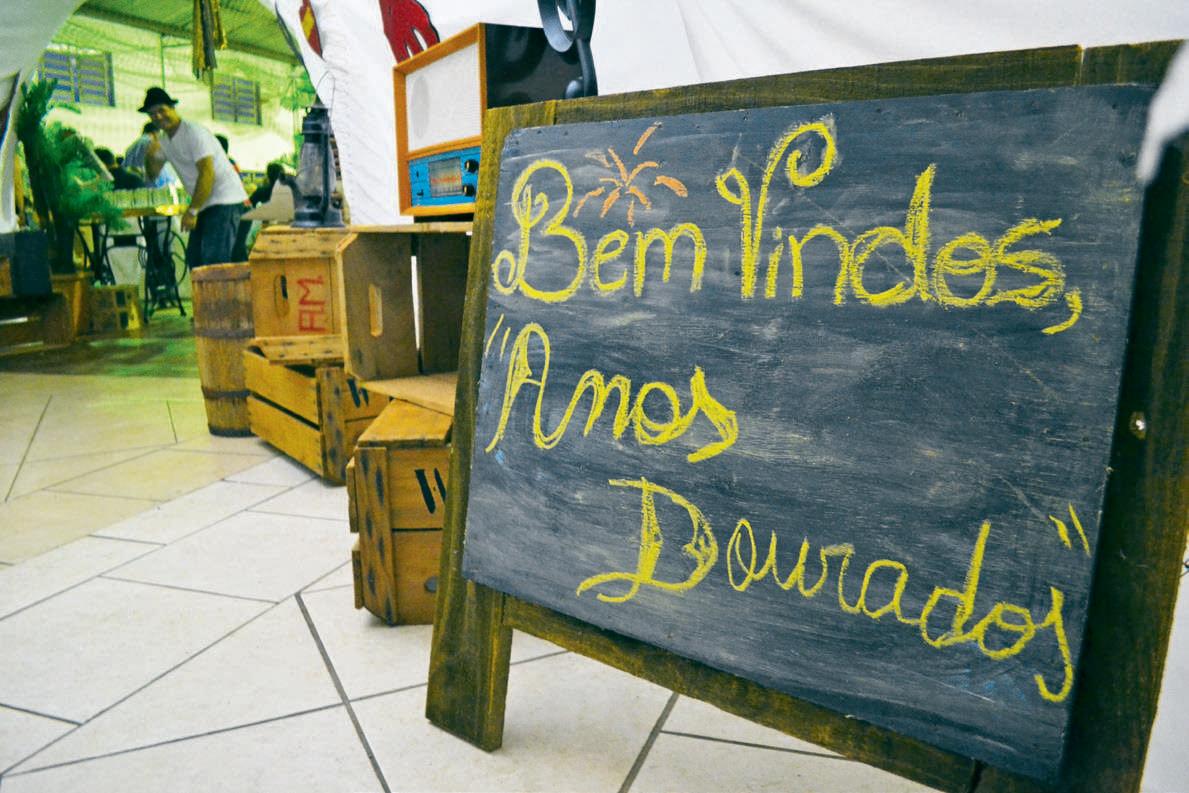 Bem Vindos,
"Anos
Dourados"
AM
W